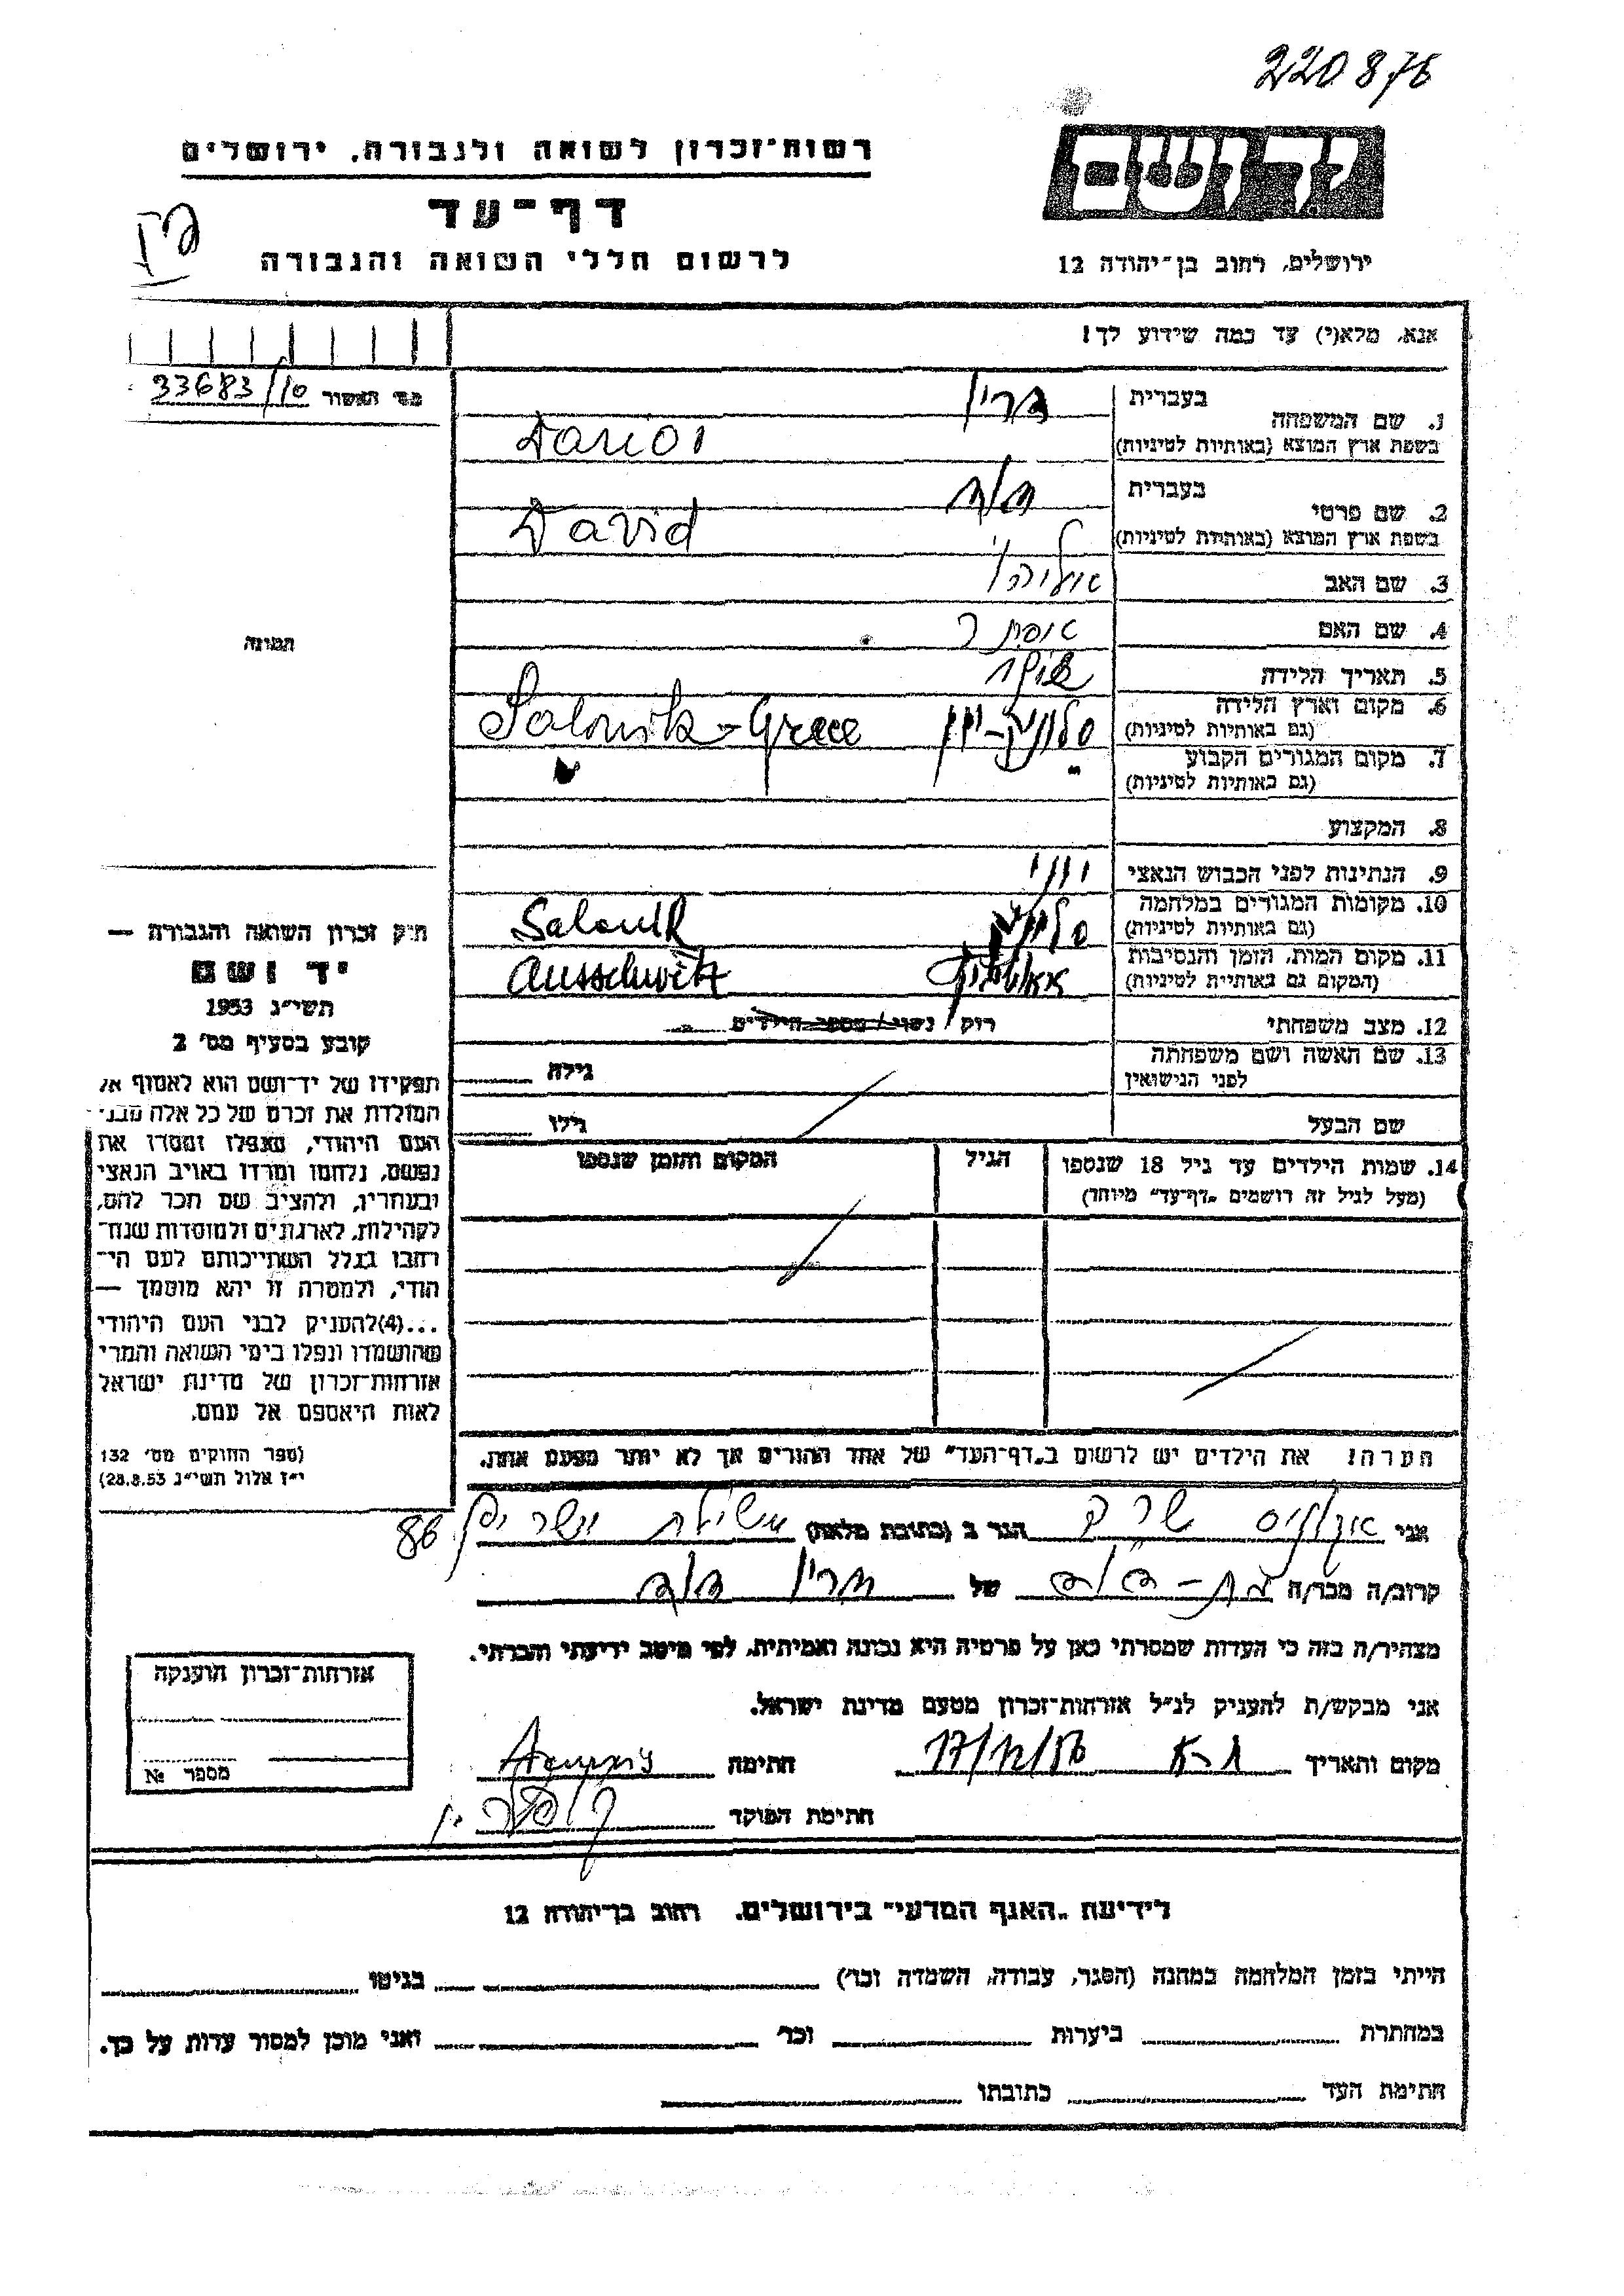 220876
רשות־זכרון לשואה ולגבורה, ירושלים
דף־עד
לרשום חללי השואה והגבורה
יד ושם
ירושלים, רחוב בן־יהודה 12
אנא, מלא(י) עד כמה שידוע לך!
מס׳ האשור 33683/10
1. שם המשפחה
בעברית
בשפת ארץ המוצא (באותיות לטיניות)
2. שם פרטי
בעברית דוד
בשפת ארץ המוצא (באותיות לטיניות) David
3. שם האב אליהו
4. שם האם
5. תאריך הלידה
6. מקום וארץ הלידה
(גם באותיות לטיניות) סלוניק-יוון Salonik-Grece
7. מקום המגורים הקבוע
(גם באותיות לטיניות) "
8. המקצוע
9. הנתינות לפני הכבוש הנאצי יווני
10. מקומות המגורים במלחמה
(גם באותיות לטיניות) סלוניק Salonik
11. מקום המות, הזמן והנסיבות
(המקום גם באותיות לטיניות) Ausschwitz
12. מצב משפחתי רוק / נשוי / מספר הילדים
13. שם האשה ושם משפחתה
לפני הנישואין
גילה
שם הבעל גילו
14. שמות הילדים עד גיל 18 שנספו
(מעל לגיל זה רושמים "דף־עד" מיוחד)
הגיל
המקום והזמן שנספו
הערה! את הילדים יש לרשום ב"דף־העד" של אחד ההורים אך לא יותר מפעם אחת.
תמונה
חוק זכרון השואה והגבורה —
יד ושם
תשי״ג 1953
קובע בסעיף מס׳ 2
תפקידו של יד־ושם הוא לאסוף אל
המולדת את זכרם של כל אלה מבני
העם היהודי, שנפלו ומסרו את
נפשם, נלחמו ומרדו באויב הנאצי
ובעוזריו, ולהציב שם וזכר להם,
לקהילות, לארגונים ולמוסדות שנח־
רחבו בגלל השתייכותם לעם הי־
הודי, ולמטרה זו יהא מוסמך —
...(4)להעניק לבני העם היהודי
שהושמדו ונפלו בימי השואה והמרי
אזרחות־זכרון של מדינת ישראל
לאות היאספם אל עמם.
(ספר החוקים מס׳ 132
י״ז אלול תשי״ג 28.8.53)
אני הגר ב (כתובת מלאה) 86
קרוב/ה מכר/ה בת-דוד של דוד
מצהיר/ה בזה כי העדות שמסרתי כאן על פרטיה היא נכונה ואמיתית, לפי מיטב ידיעתי והכרתי.
אני מבקש/ת להעניק לנ״ל אזרחות־זכרון מטעם מדינת ישראל.
מקום ותאריך 17/12/56 חתימה
חתימת הפוקד
אזרחות־זכרון הוענקה
מספר №
לידיעת "האגף המדעי" בירושלים, רחוב בן־יהודה 12
הייתי בזמן המלחמה במחנה (הסגר, עבודה, השמדה וכו׳) בגיטו
במחתרת ביערות וכו׳ ואני מוכן למסור עדות על כך.
חתימת העד כתובתו